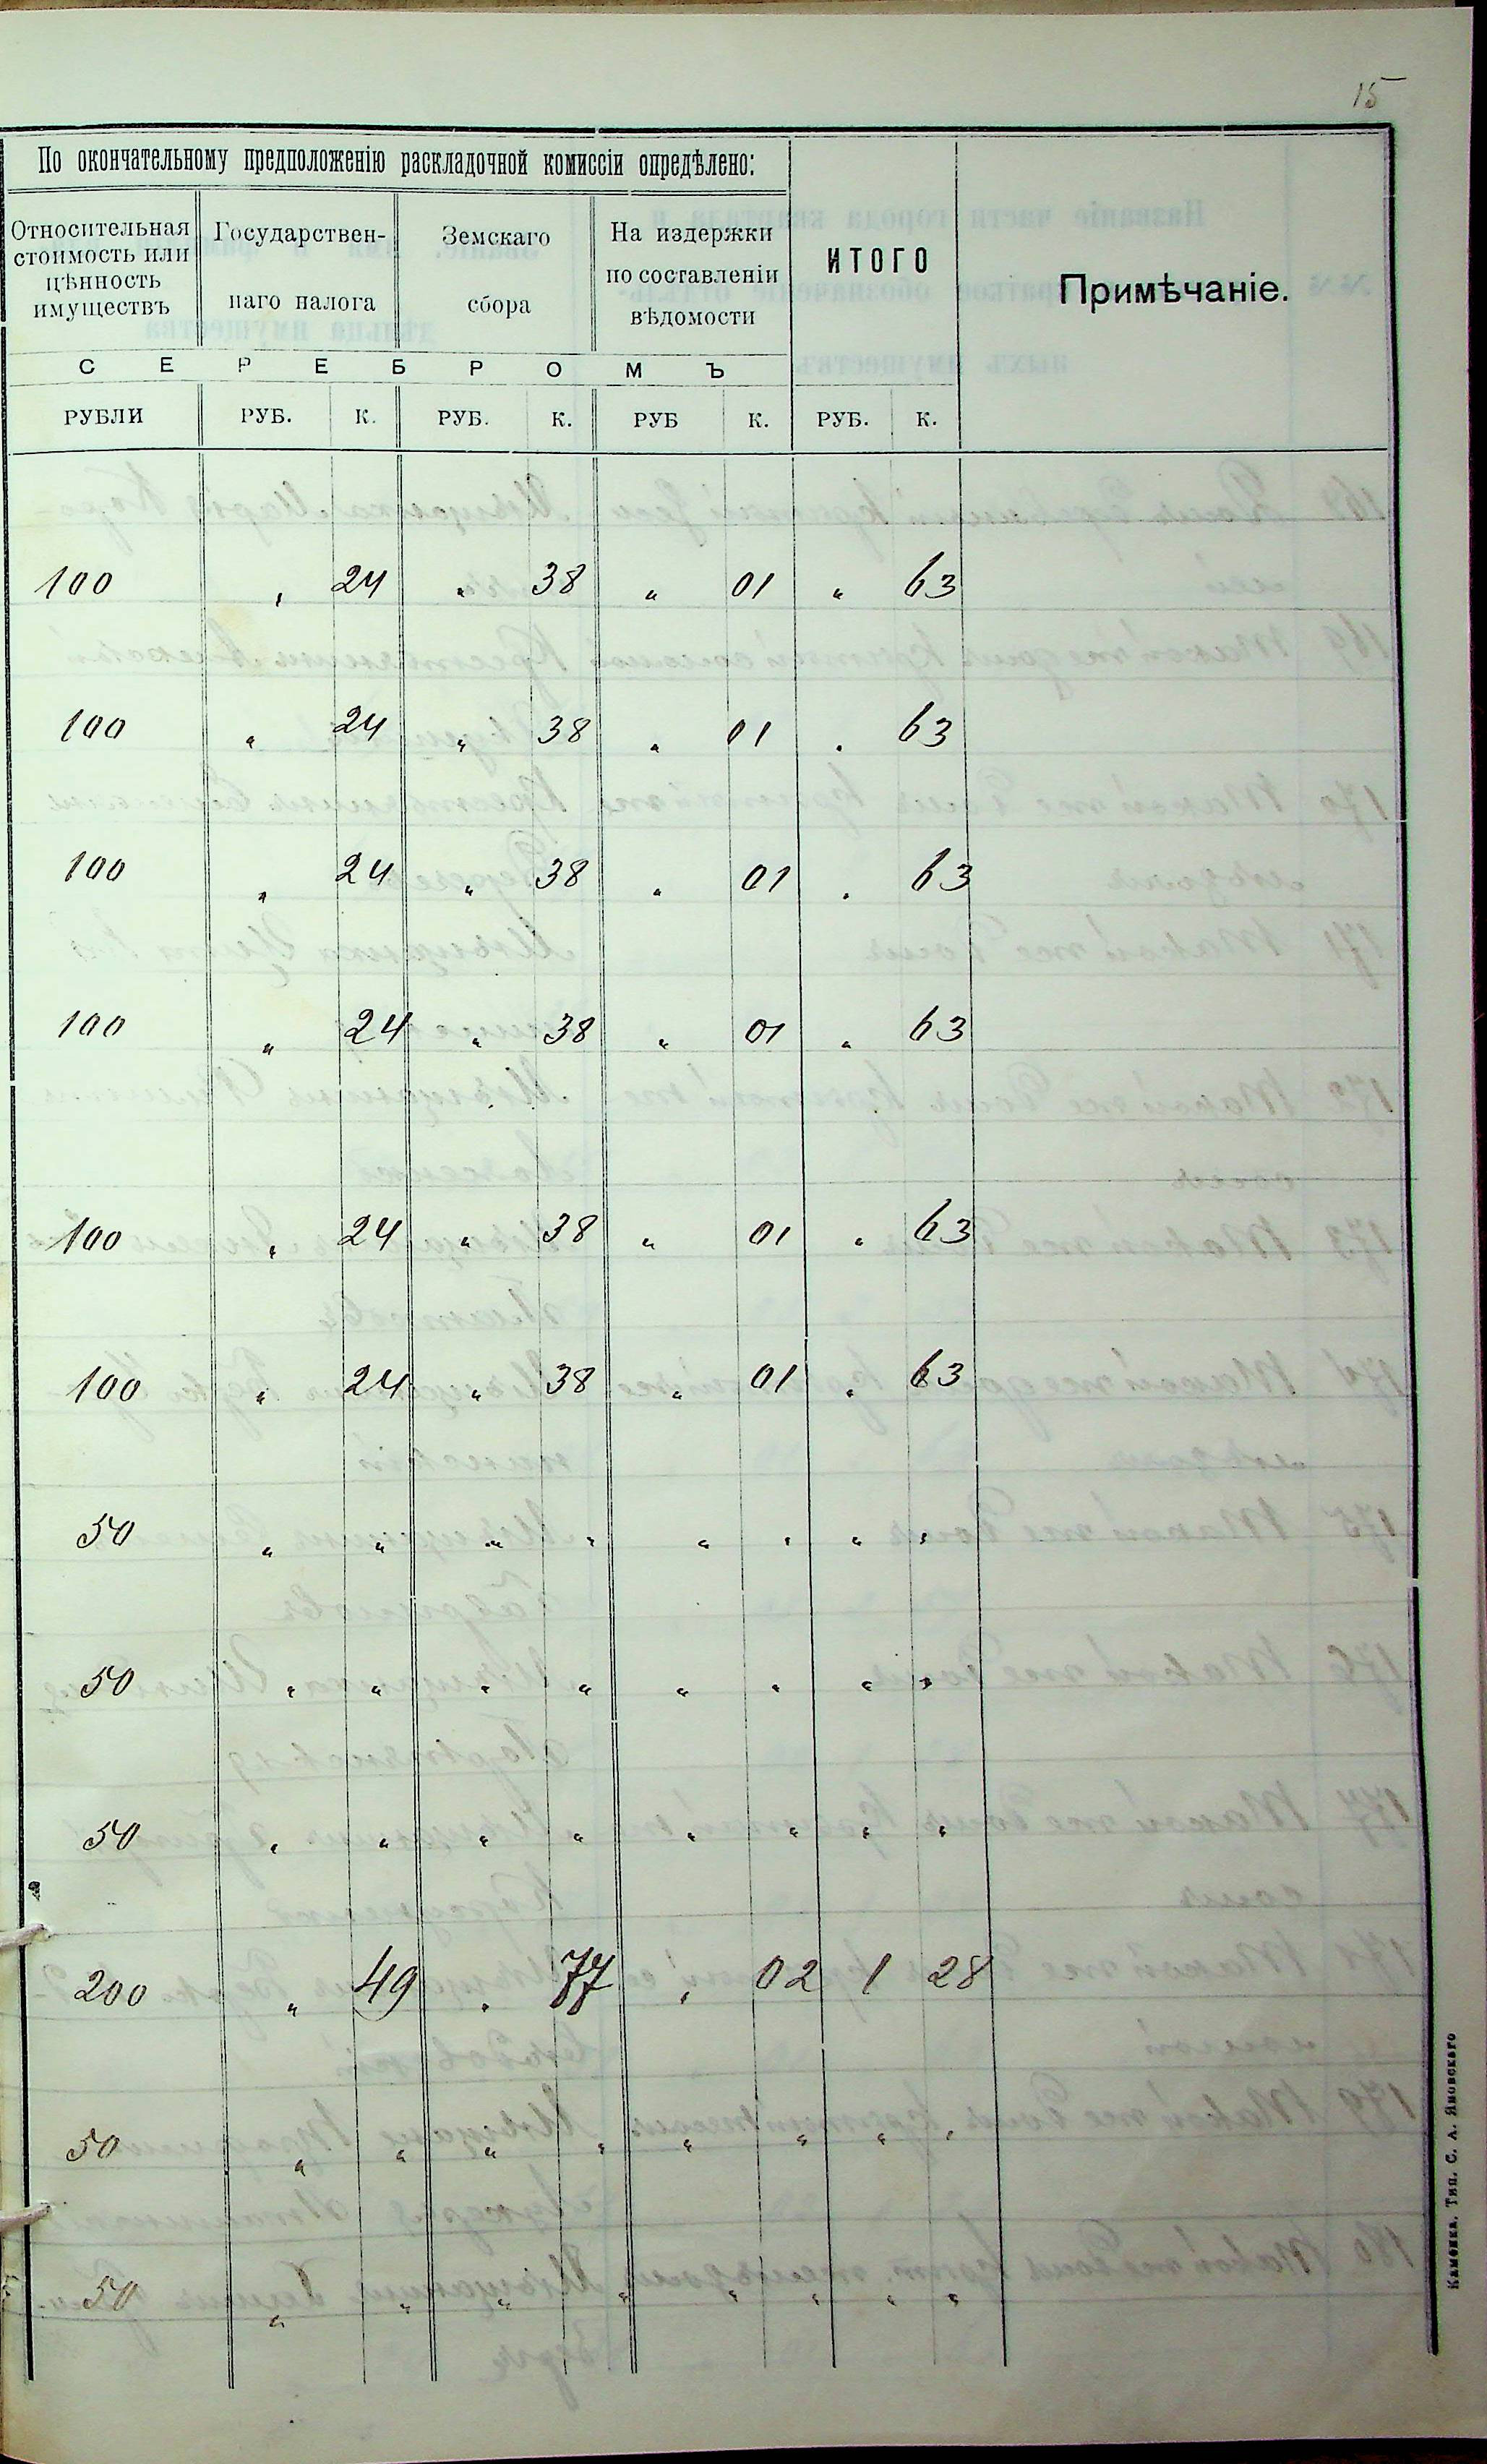 15
По окончательному предположенію раскладочной комиссіи опредѣлено:
Относительная стоимость или цѣнность имуществъ
Государствен-наго налога
Земскаго сбора
На издержки по составленіи вѣдомости
ИТОГО
Примѣчаніе.
С Е Р Е Б Р О М Ъ
РУБЛИ РУБ. К. РУБ. К. РУБ К. РУБ. К.
100 " 24 " 38 " 01 " 63
100 " 24 " 38 " 01 " 63
100 " 24 " 38 " 01 " 63
100 " 24 " 38 " 01 " 63
100 " 24 " 38 " 01 " 63
100 " 24 " 38 " 01 " 63
50 " " " " " " " "
50 " " " " " " " "
50 " " " " " " " "
200 " 49 " 77 " 02 1 28
50 " " " " " " " "
50 " " " " " " " "
Каменка. Тип. С. А. Яновскаго